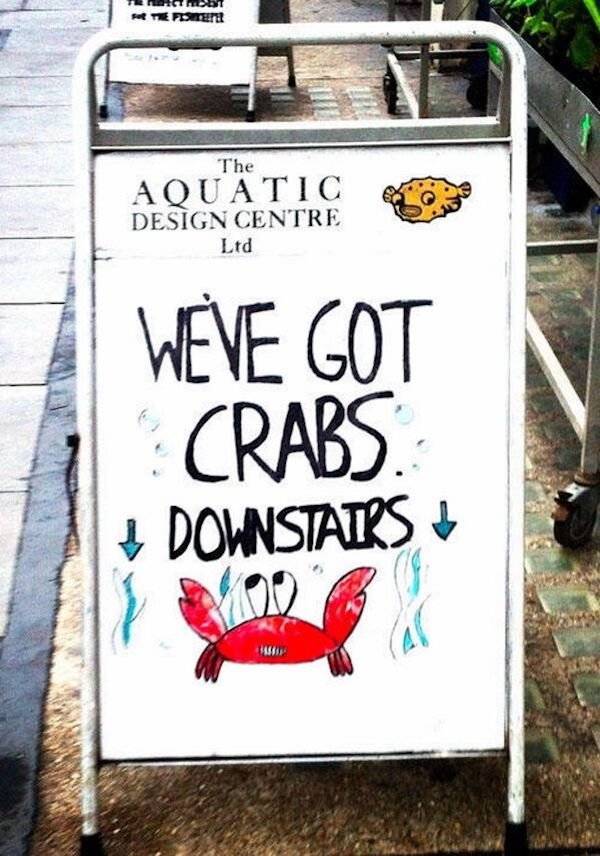 THE PERFECT PRESENT
FOR THE FISHKEEPER
The
AQUATIC
DESIGN CENTRE
Ltd
WE'VE GOT
CRABS.
DOWNSTAIRS